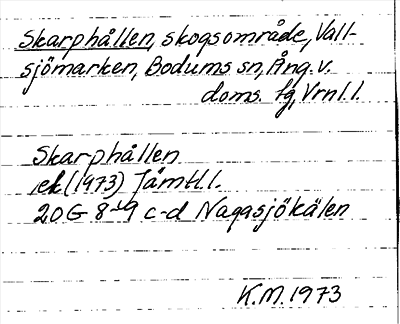 Skarphållen, skogsområde, Vall-
sjömarken, Bodums sn, Ång. v.
doms. fg, Vrnl. l.
Skarphållen
ek (1973) Jämtl. l.
20G 8-9 c-d Nagasjökälen
K.M. 1973